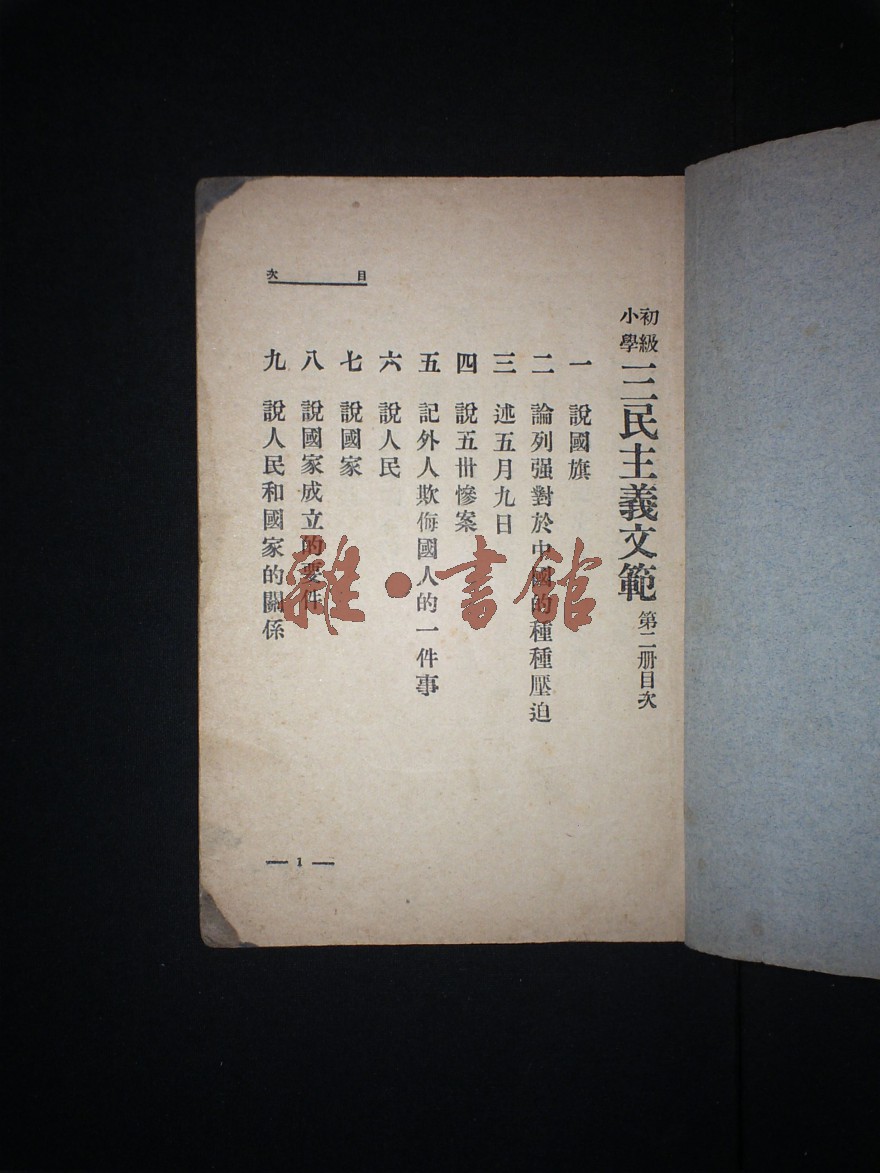 初級小學三民主義文範 第二冊目次
一 說國旗
二 論列强對於中國的種種壓迫
三 述五月九日
四 說五卅慘案
五 記外人欺侮國人的一件事
六 說人民
七 說國家
八 說國家成立的要件
九 說人民和國家的關係
目次
— 1 —
雜·書館